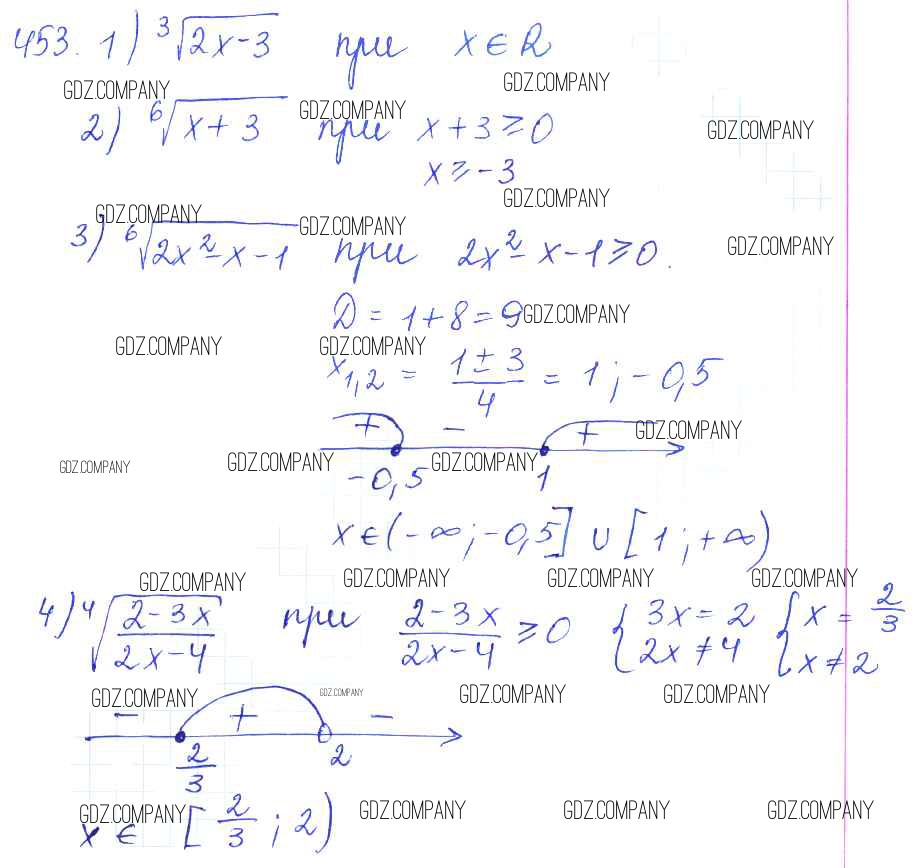 453. 1) ³√(2x-3) при x ∈ R
GDZ.COMPANY GDZ.COMPANY
2) ⁶√(x+3) при x+3 ≥ 0
GDZ.COMPANY GDZ.COMPANY
x ≥ -3
GDZ.COMPANY
GDZ.COMPANY GDZ.COMPANY
3) ⁶√(2x²-x-1) при 2x²-x-1 ≥ 0.
GDZ.COMPANY
D = 1+8 = 9
GDZ.COMPANY
GDZ.COMPANY GDZ.COMPANY
x₁,₂ = (1±3)/4 = 1; -0,5
+ - +
GDZ.COMPANY
GDZ.COMPANY GDZ.COMPANY GDZ.COMPANY
-0,5 1
x ∈ (-∞; -0,5] ∪ [1; +∞)
GDZ.COMPANY GDZ.COMPANY GDZ.COMPANY GDZ.COMPANY
4) ⁴√((2-3x)/(2x-4)) при (2-3x)/(2x-4) ≥ 0 { 3x = 2 { x = 2/3
2x ≠ 4 x ≠ 2
GDZ.COMPANY GDZ.COMPANY GDZ.COMPANY GDZ.COMPANY
- + -
2/3 2
GDZ.COMPANY GDZ.COMPANY GDZ.COMPANY GDZ.COMPANY
x ∈ [2/3; 2)